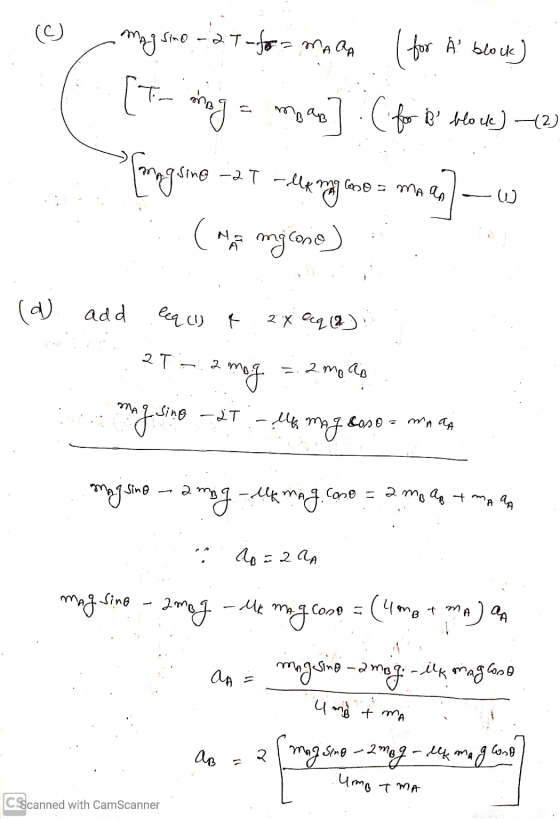 (c) mAg sinθ - 2T - fr = mA aA (for A' block)
[T - mBg = mB aB]. (for B' block) —(2)
[mAg sinθ - 2T - μk mAg cosθ = mA aA] —(1)
(NA = mg cosθ)
(d) add eq (1) & 2 x eq (2).
2T - 2 mBg = 2 mB aB
mAg sinθ - 2T - μk mAg cosθ = mA aA
mAg sinθ - 2 mBg - μk mAg cosθ = 2 mB aB + mA aA
∵ aB = 2 aA
mAg sinθ - 2mBg - μk mAg cosθ = (4mB + mA) aA
aA = mAg sinθ - 2mBg - μk mAg cosθ
4mB + mA
aB = 2 [mAg sinθ - 2mBg - μk mAg cosθ]
4mB + mA
CS Scanned with CamScanner